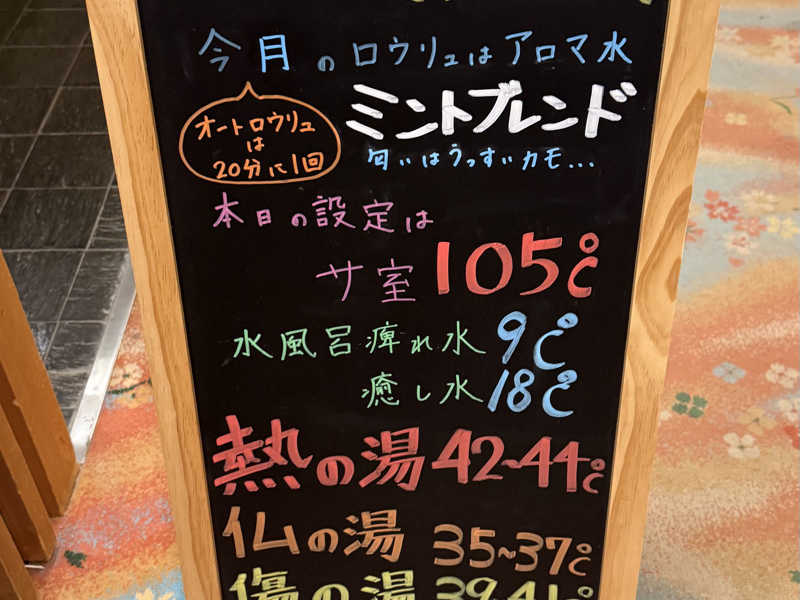 今月のロウリュはアロマ水
ミントブレンド
オートロウリュ
は
20分に1回
匂いはうっすいカモ...
本日の設定は
サ室 105℃
水風呂痺れ水 9℃
癒し水 18℃
熱の湯 42~44℃
仏の湯 35~37℃
傷の湯 39~41℃